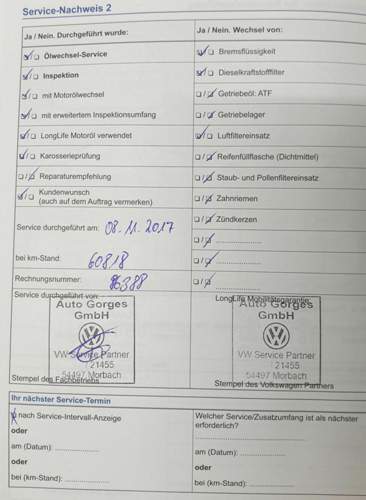 Service-Nachweis 2
Ja / Nein. Durchgeführt wurde:
☑/☐ Ölwechsel-Service
☑/☐ Inspektion
☑/☐ mit Motorölwechsel
☑/☐ mit erweitertem Inspektionsumfang
☑/☐ LongLife Motoröl verwendet
☑/☐ Karosserieprüfung
☐/☑ Reparaturempfehlung
☑/☐ Kundenwunsch
(auch auf dem Auftrag vermerken)
Service durchgeführt am: 08.11.2017
bei km-Stand: 60818
Rechnungsnummer:
Service durchgeführt von:
Auto Gorges
GmbH
VW Service Partner
21455
54497 Morbach
Stempel des Fachbetriebs
Ja / Nein. Wechsel von:
☑/☐ Bremsflüssigkeit
☑/☐ Dieselkraftstofffilter
☐/☑ Getriebeöl: ATF
☐/☑ Getriebelager
☑/☐ Luftfiltereinsatz
☐/☑ Reifenfüllflasche (Dichtmittel)
☐/☑ Staub- und Pollenfiltereinsatz
☐/☑ Zahnriemen
☐/☑ Zündkerzen
☐/☑ ....................
☐/☑ ....................
☐/☑ ....................
LongLife Mobilitätsgarantie:
Auto Gorges
GmbH
VW Service Partner
21455
54497 Morbach
Stempel des Volkswagen Partners
Ihr nächster Service-Termin
☒ nach Service-Intervall-Anzeige
oder
am (Datum): ....................
oder
bei (km-Stand): ....................
Welcher Service/Zusatzumfang ist als nächster
erforderlich?
....................
am (Datum): ....................
oder
bei (km-Stand): ....................